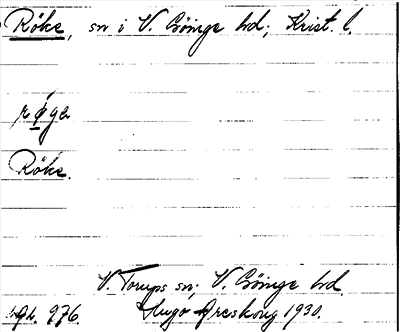 Röke, sn i V. Göinge hd; Krist. l.
røga
Röke.
V. Torups sn; V. Göinge hd.
976. Hugo Areskoug 1930.